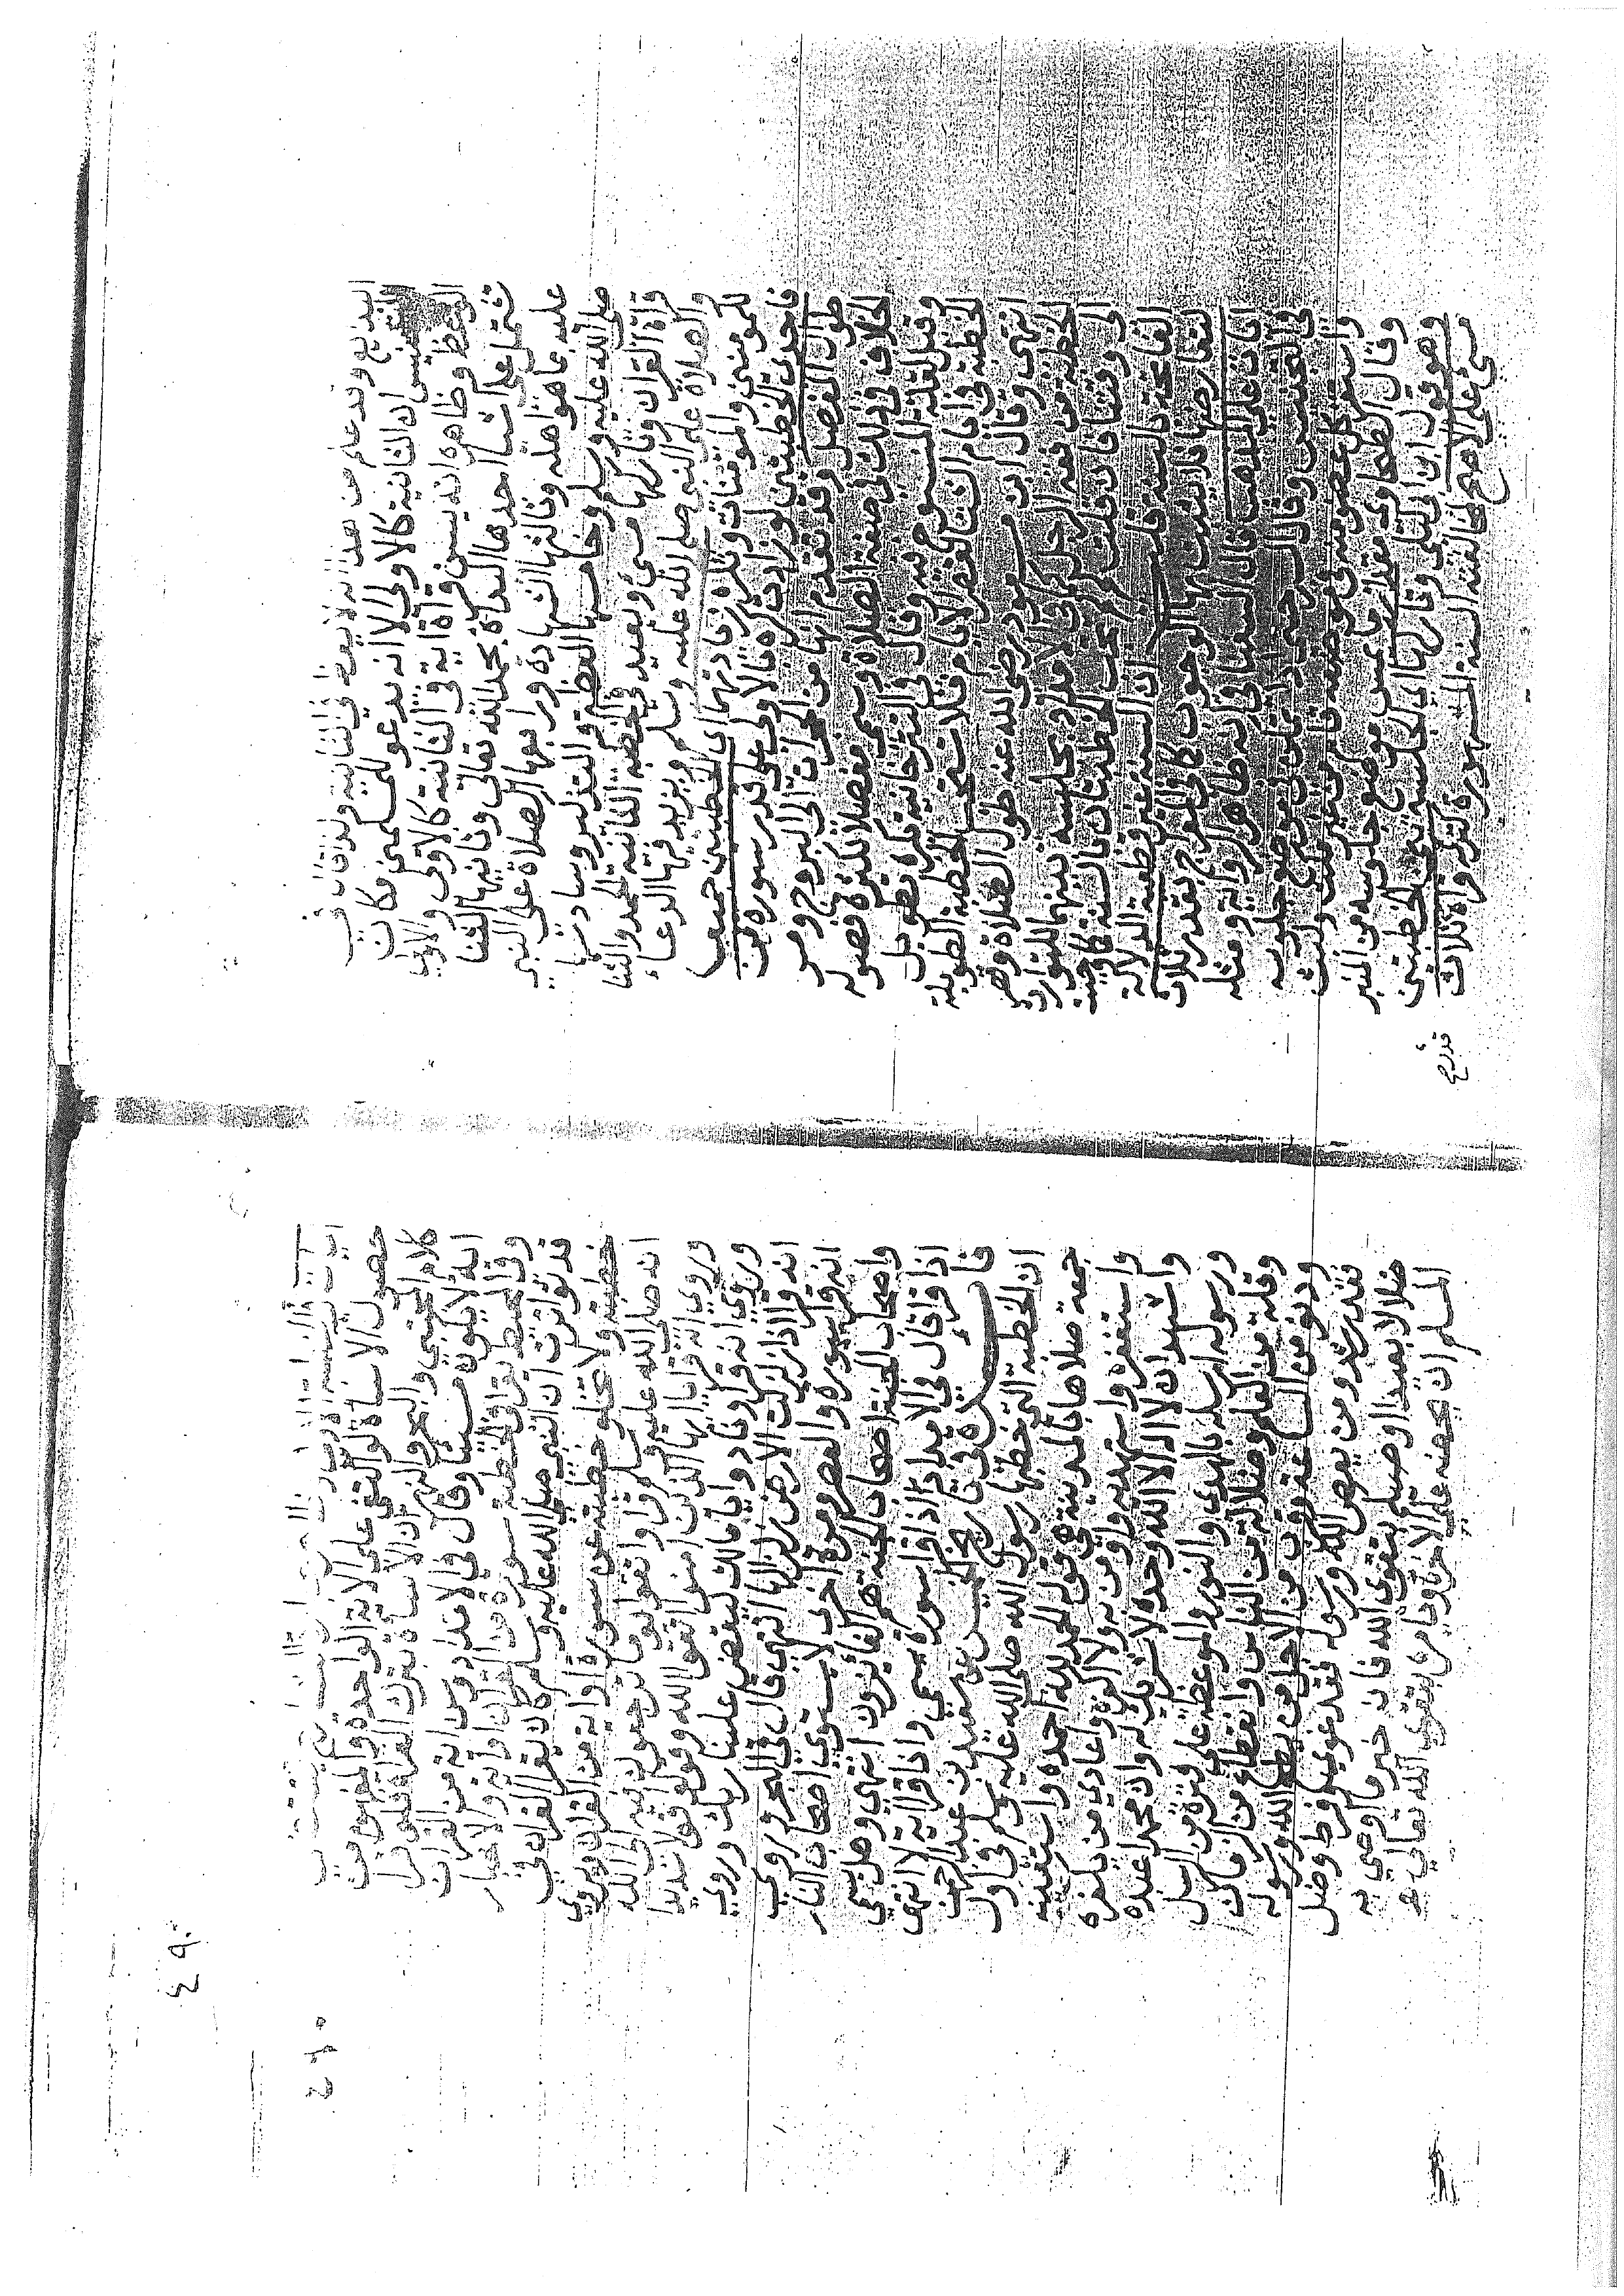 البديع وقد علم من هذا انه لا يعظ في الثانية ولذا قال في
التجنيس ان الثانية كالاولى الا انه يدعو للمسلمين مكان
الوعظ وظاهره انه يسن قراة آية في الثانية كالاولى والاولى
تشتمل على اشيا احدها البداة بحمد الله تعالى وثانيها الثنا
عليه بما هو اهله وثالثها الشهادة ورابعها الصلاة على النبي
صلى الله عليه وسلم وخامسها العظة والتذكير وسادسها
قراة القران وتاركها مسئ ويعيد في الخطبة الثانية الحمد والثنا
والصلاة على النبي صلى الله عليه وسلم ويزيد فيها الدعاء
للمومنين والمومنات وتكره زيادتهما اى الخطبتين جميعا
فاحدى الخطبتين لو زادت كره بالاولى على قدر سورة من
طوال المفصل وقد تقدم انها من الحجرات الى البروج ومر
الخلاف في ذلك في صفة الصلاة وسمى مفصلا لكثرة فصوله
وقيل لقلة المنسوخ فيه وقال في التترخانية يكره تطويل
الخطبة في ايام الشتا لقصر الايام فلا تستحب الخطبة الطويلة
انتهى وقال ابن مسعود رضى الله عنه طول الصلاة وقصر
الخطبة من فقه الرجل كما في الامداد بجلسة بينهما للتوارث
الى وقتنا فان قلت لم لم تجب الخطبتان بالسنة كما وجبت
الفاتحة بالسنة قلت لان السنة غير قطعية الدلالة
لتعارضها فلا يثبت بها الوجوب كما في المعراج بقدر ثلاث
ايات على المذهب قال السغناقي انه ظاهر الرواية ومثله
في التجنيس وقال السرخسي اذا تمكن في موضع جلوسه
واستقر كل عضو منه في موضعه قام من غير مكث ولبث
وقال الطحاوى مقدار ما يمس موضع جلوسه من المنبر
وهو قول ابن ابي ليلى وتاركها اى الجلسة بين الخطبتين
مسئ على الاصح لمخالفته السنة المشهورة كتركه قراة ثلاث
حصول الاساة لو اقتصر على الآية الواحدة والمفهوم من
كلام المجتبى والبحر والنهر ان الاساة بترك القراة فلو قرا
اية لا يكون مسيئا وقال في الامداد وسن اية من القران
وفي المحيط يقرا في الخطبة سورة من القران او آية والاخبار
قد تواترت ان النبي صلى الله عليه وسلم كان يقرا القران في
خطبته ولا تخلو خطبته عن سورة او اية من القران وروى
انه صلى الله عليه وسلم قرا واتقوا يوما ترجعون فيه الى الله
وروى انه قرا يا ايها الذين امنوا اتقوا الله وقولوا قولا سديدا
وروى انه قرا ونادوا يا مالك ليقض علينا ربك وروى
انه قرا اذا زلزلت الارض زلزالها انتهى قال في البحر وروى
انه قرا سورة والعصر ومرة اخرى لا يستوى اصحاب النار
واصحاب الجنة اصحاب الجنة هم الفائزون انتهى وهل يسمى
اذا قرا قال في الامداد اذا قرا سورة يسمى واذا قرا آية لا انتهى
فائدة في تاريخ الخميس عن سعيد بن عبد الرحمن
ان الخطبة التي خطبها رسول الله صلى الله عليه وسلم في اول
جمعة صلاها بالمدينة هى قوله الحمد لله احمده واستعينه
واستغفره واستهديه واومن به ولا اكفره واعادى من يكفره
واشهد ان لا اله الا الله وحده لا شريك له وان محمدا عبده
ورسوله ارسله بالهدى والنور والموعظة على فترة من الرسل
وقلة من العلم وضلالة من الناس وانقطاع من الزمان
ودنو من الساعة وقرب من الاجل من يطع الله ورسوله
فقد رشد ومن يعص الله ورسوله فقد غوى وفرط وضل
ضلالا بعيدا اوصيكم بتقوى الله فانه خير ما اوصى به
المسلم المسلم ان يحضه على الاخرة وان يامره بتقوى الله تعالى
٤٩٠